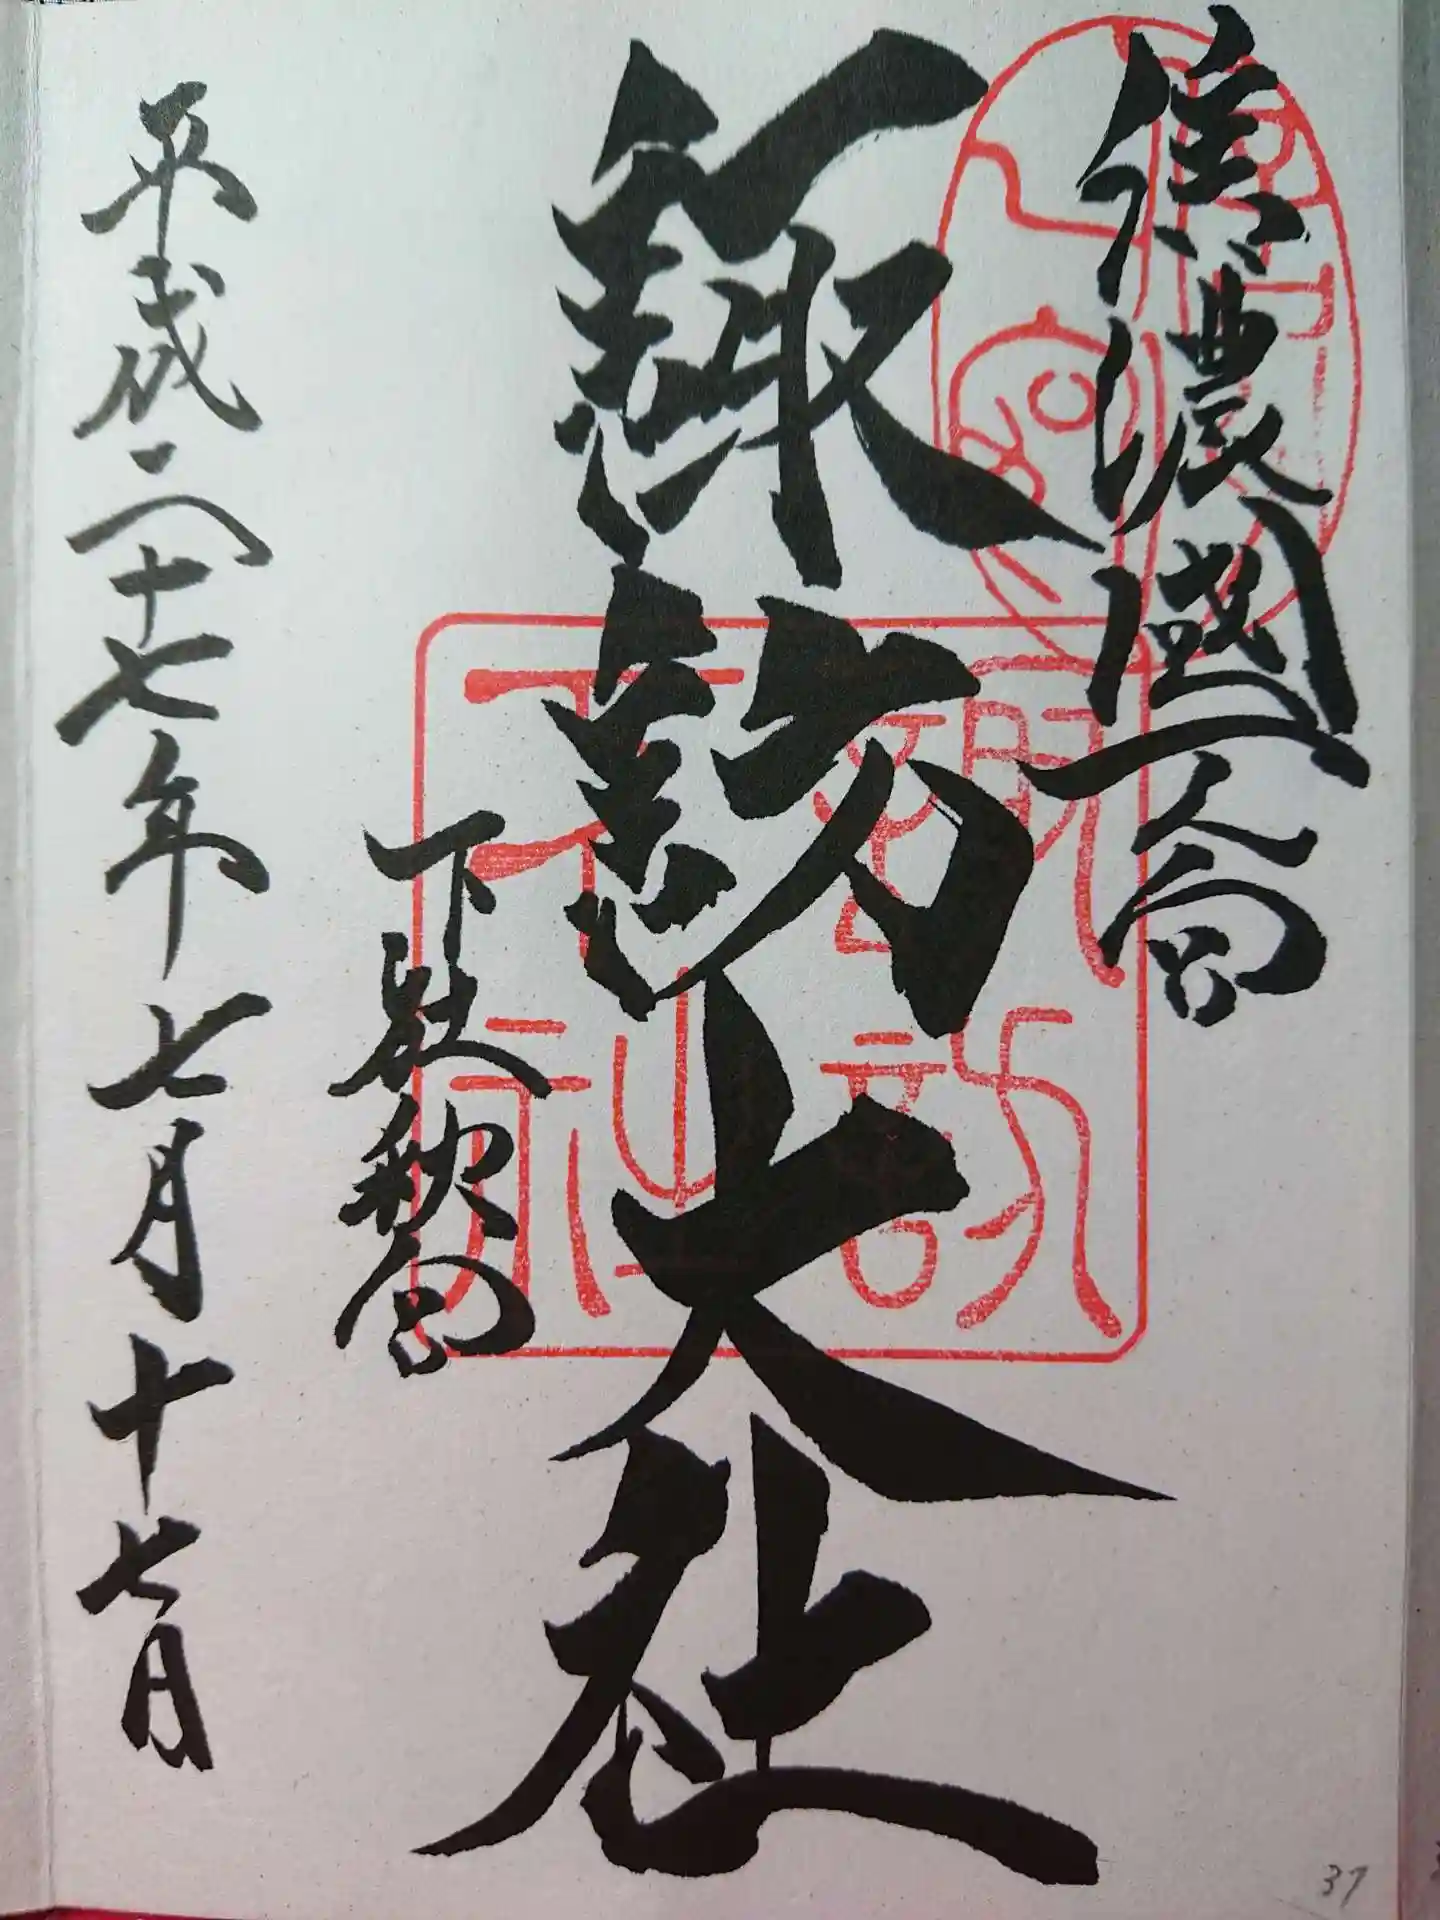 信濃國一宮
諏訪大社
下社秋宮
平成二十七年七月十七日
37